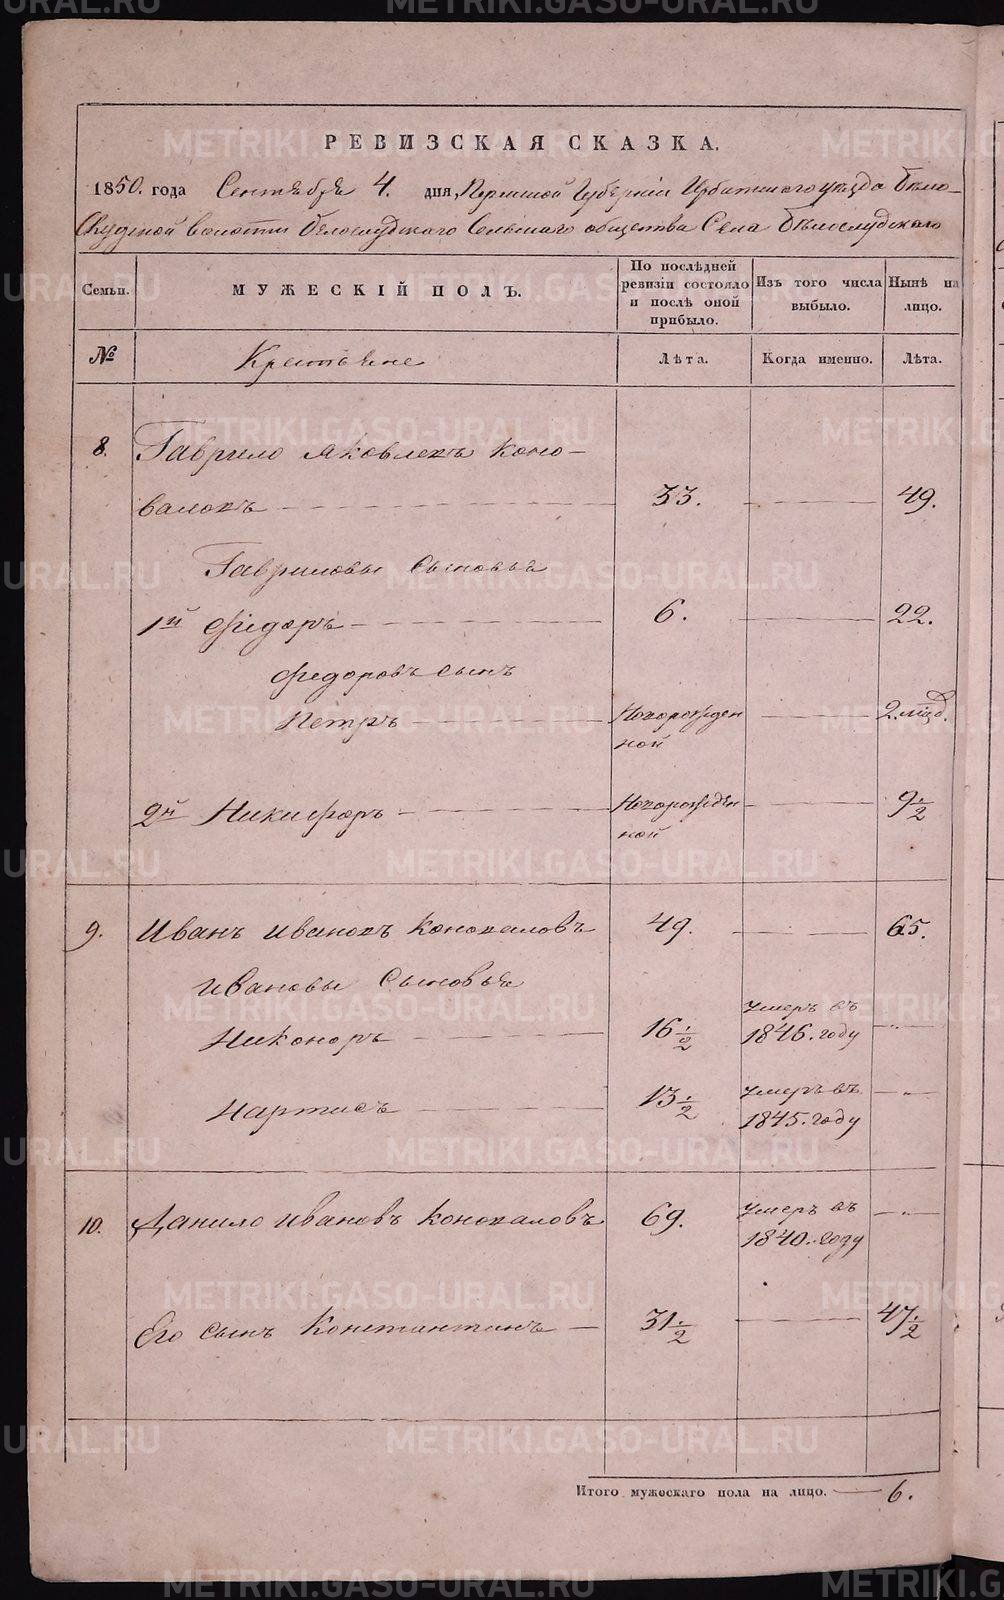 РЕВИЗСКАЯ СКАЗКА.
1850. года Сентября 4. дня, Пермской Губернии Ирбитского уезда Бѣло-
слудской волости Бѣлослудского Сельского общества Села Бѣлослудского
Семьи.
МУЖЕСКІЙ ПОЛЪ.
По послѣдней ревизіи состояло и послѣ оной прибыло.
Изъ того числа выбыло.
Нынѣ на лицо.
№
Крестьяне
Лѣта.
Когда именно.
Лѣта.
8. Гаврило Яковлевъ Коно-
валовъ 33. 49.
Гавриловы Сыновья
1й Федоръ 6. 22.
Федоровъ сынъ
Петръ Новорожденной 2 мѣд.
2й Никифоръ Новорожденной 9 1/2
9. Иванъ Ивановъ Коноваловъ 49. 65.
Ивановы Сыновья
Никоноръ 16 1/2 умеръ въ 1846. году - " -
Нартисъ 13 1/2 умеръ въ 1845. году - " -
10. Данило Ивановъ Коноваловъ 69. умеръ въ 1840. году - " -
Его сынъ Константинъ 31 1/2 47 1/2
Итого мужескаго пола на лицо. 6.
METRIKI.GASO-URAL.RU